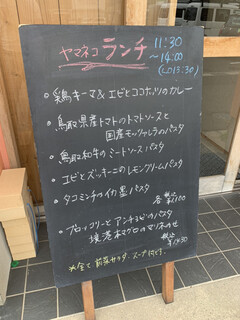 ヤマネコ ランチ 11:30
～14:00
(LO13:30)
・鶏キーマ&エビとココナッツのカレー
・鳥取県産トマトのトマトソースと
国産モッツァレラのパスタ
・鳥取和牛のミートソースパスタ
・エビとズッキーニのレモンクリームパスタ
・タコミンチのイカ墨パスタ
各税込¥1100
・ブロッコリーとアンチョビのパスタ
境港本マグロのマリネのせ
税込
※全て前菜サラダ、スープ付き!